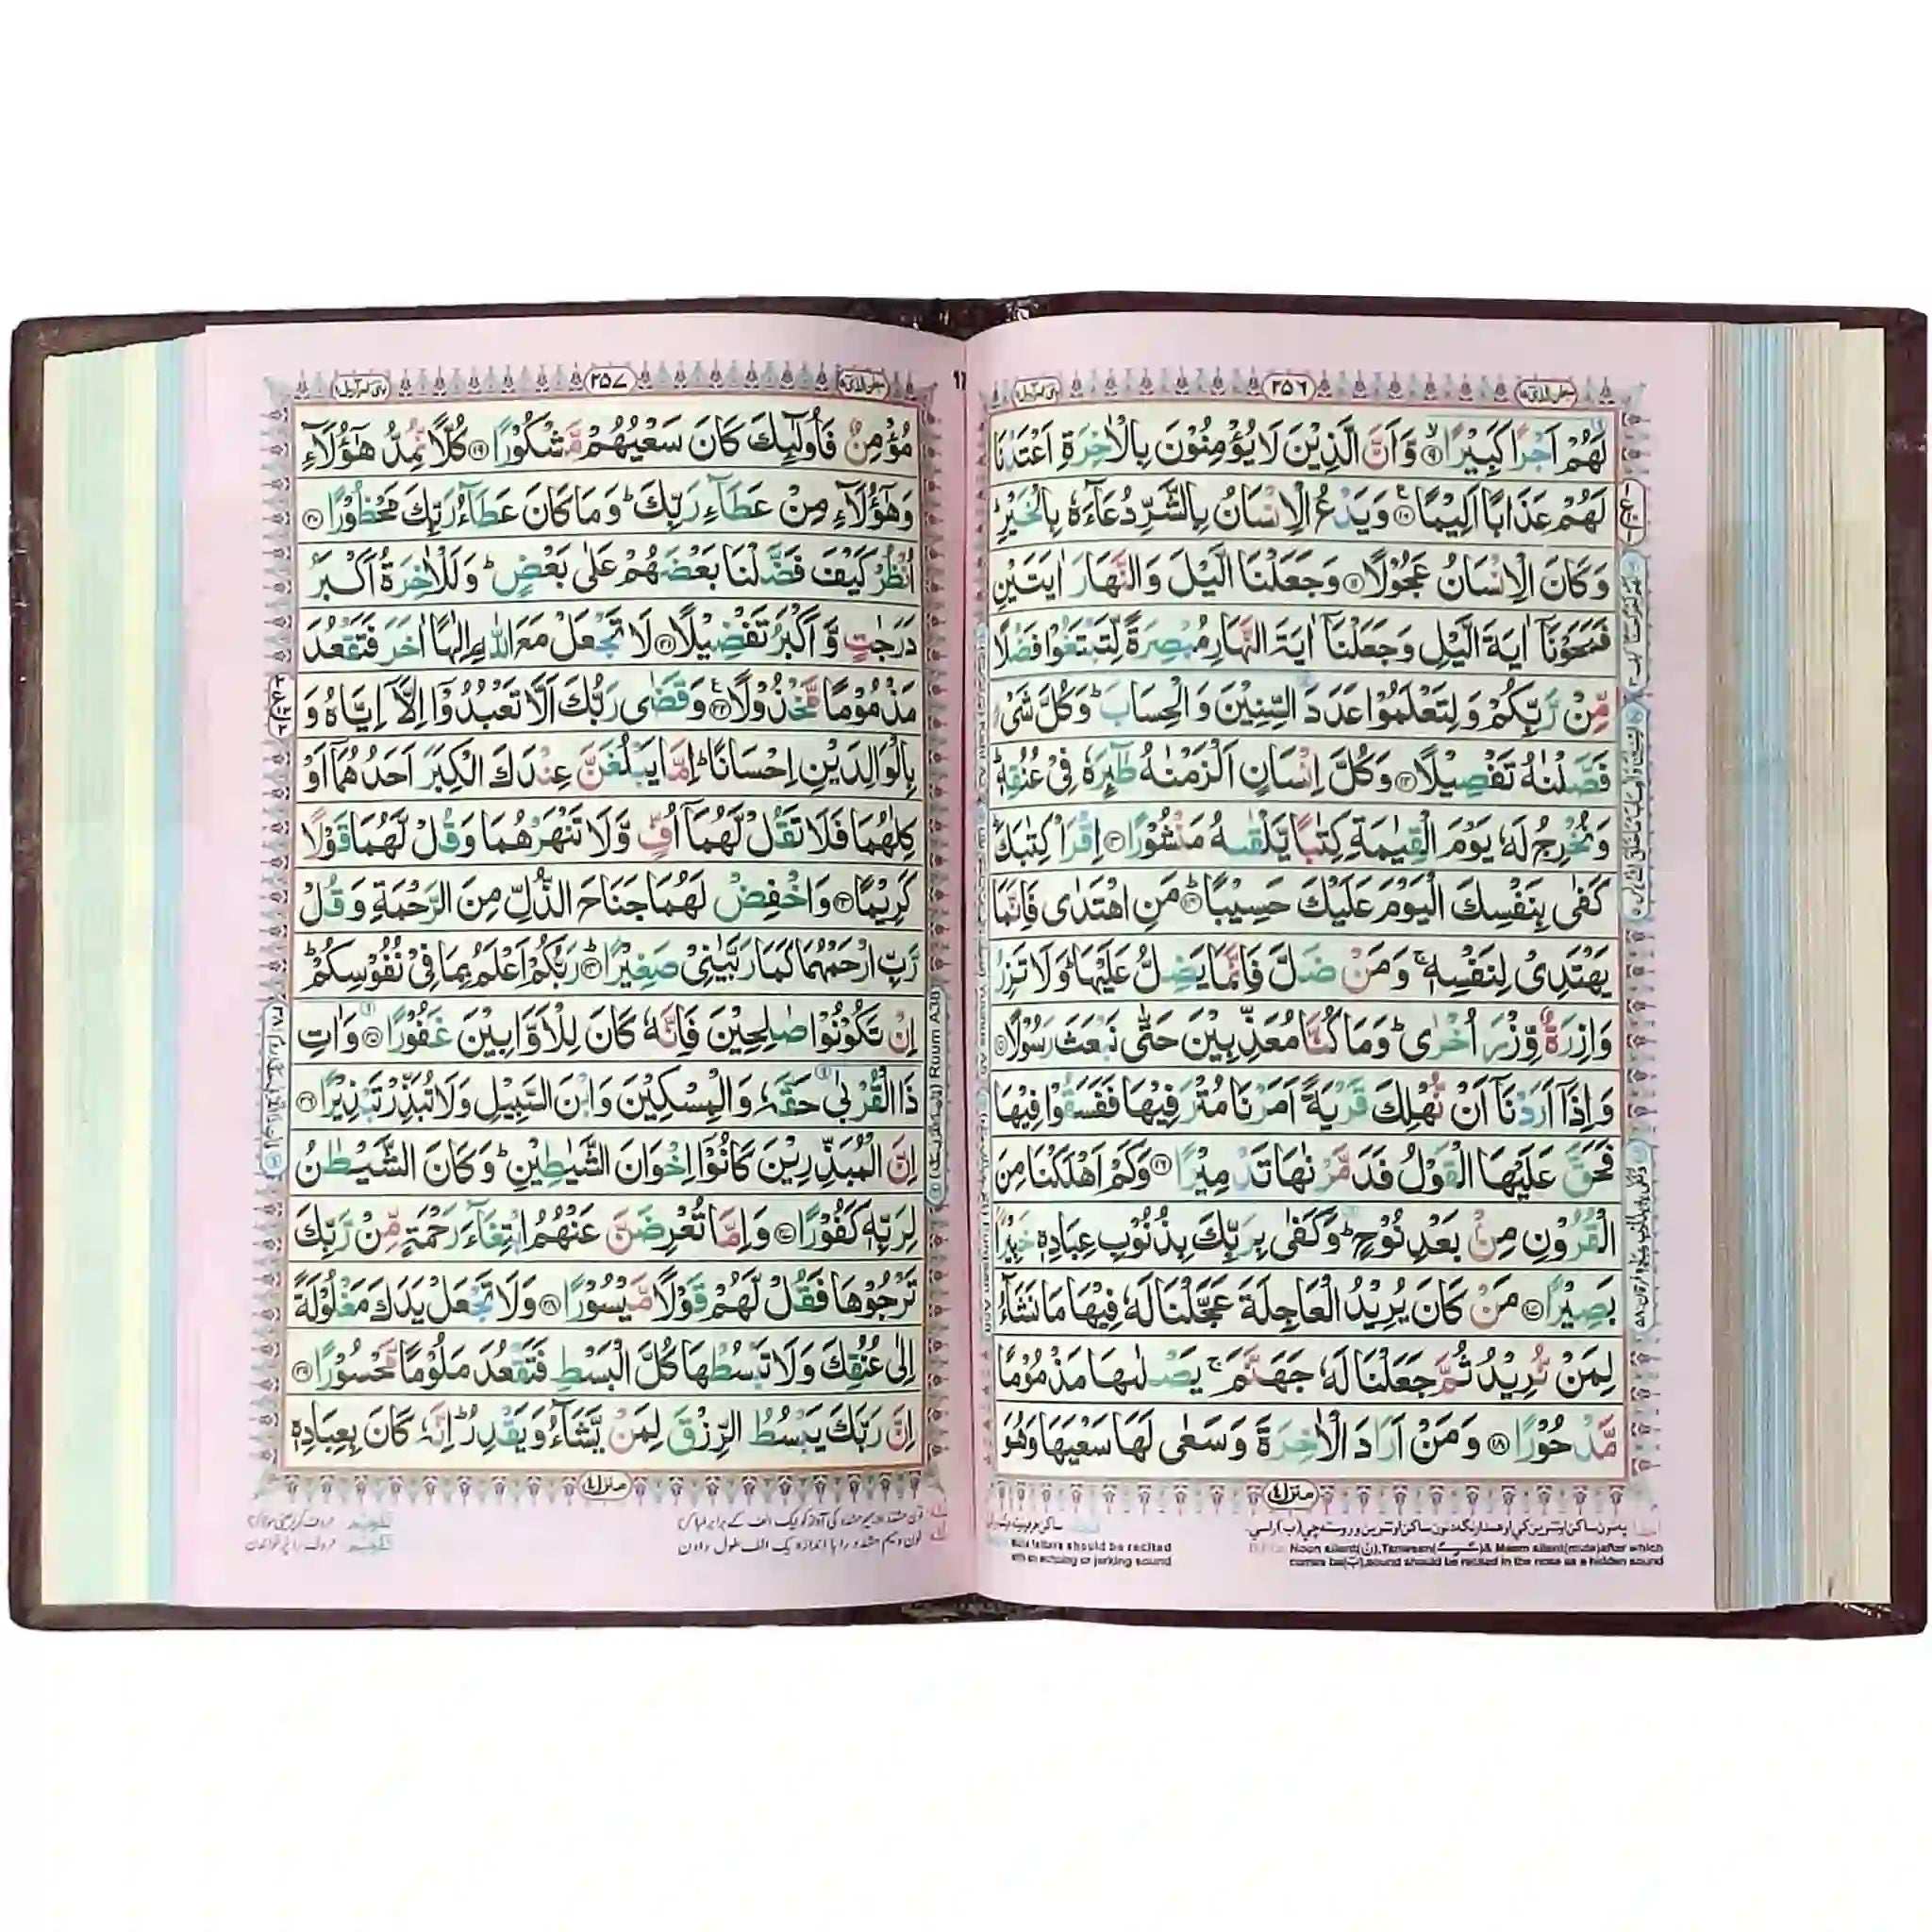 سبحن الذي ۱۵
۲۵۶
بنی اسرآءیل ۱۷
لَهُمْ اَجْرًا كَبِيْرًا ۙ۹ وَّاَنَّ الَّذِيْنَ لَا يُؤْمِنُوْنَ بِالْاٰخِرَةِ اَعْتَدْنَا
لَهُمْ عَذَابًا اَلِيْمًا ۧ۱۰ وَيَدْعُ الْاِنْسَانُ بِالشَّرِّ دُعَآءَهٗ بِالْخَيْرِ ؕ
وَكَانَ الْاِنْسَانُ عَجُوْلًا ۱۱ وَجَعَلْنَا الَّيْلَ وَالنَّهَارَ اٰيَتَيْنِ
فَمَحَوْنَاۤ اٰيَةَ الَّيْلِ وَجَعَلْنَاۤ اٰيَةَ النَّهَارِ مُبْصِرَةً لِّتَبْتَغُوْا فَضْلًا
مِّنْ رَّبِّكُمْ وَلِتَعْلَمُوْا عَدَدَ السِّنِيْنَ وَالْحِسَابَ ؕ وَكُلَّ شَیْءٍ
فَصَّلْنٰهُ تَفْصِيْلًا ۱۲ وَكُلَّ اِنْسَانٍ اَلْزَمْنٰهُ طٰٓئِرَهٗ فِیْ عُنُقِهٖ ؕ
وَنُخْرِجُ لَهٗ يَوْمَ الْقِيٰمَةِ كِتٰبًا يَّلْقٰىهُ مَنْشُوْرًا ۱۳ اِقْرَاْ كِتٰبَكَ ؕ
كَفٰی بِنَفْسِكَ الْيَوْمَ عَلَيْكَ حَسِيْبًا ؕ۱۴ مَنِ اهْتَدٰی فَاِنَّمَا
يَهْتَدِیْ لِنَفْسِهٖ ۚ وَمَنْ ضَلَّ فَاِنَّمَا يَضِلُّ عَلَيْهَا ؕ وَلَا تَزِرُ
وَازِرَةٌ وِّزْرَ اُخْرٰی ؕ وَمَا كُنَّا مُعَذِّبِيْنَ حَتّٰی نَبْعَثَ رَسُوْلًا ۱۵
وَاِذَاۤ اَرَدْنَاۤ اَنْ نُّهْلِكَ قَرْيَةً اَمَرْنَا مُتْرَفِيْهَا فَفَسَقُوْا فِيْهَا
فَحَقَّ عَلَيْهَا الْقَوْلُ فَدَمَّرْنٰهَا تَدْمِيْرًا ۱۶ وَكَمْ اَهْلَكْنَا مِنَ
الْقُرُوْنِ مِنْۢ بَعْدِ نُوْحٍ ؕ وَكَفٰی بِرَبِّكَ بِذُنُوْبِ عِبَادِهٖ خَبِيْرًۢا
بَصِيْرًا ۱۷ مَنْ كَانَ يُرِيْدُ الْعَاجِلَةَ عَجَّلْنَا لَهٗ فِيْهَا مَا نَشَآءُ
لِمَنْ نُّرِيْدُ ثُمَّ جَعَلْنَا لَهٗ جَهَنَّمَ ۚ يَصْلٰىهَا مَذْمُوْمًا
مَّدْحُوْرًا ۱۸ وَمَنْ اَرَادَ الْاٰخِرَةَ وَسَعٰی لَهَا سَعْيَهَا وَهُوَ
منزل ۴
Noon silent(ن), Tanween & Meem silent(mute) after which
comes be(ب), sound should be recited in the nose as a hidden sound
letters should be recited
with an echoing or jerking sound
سبحن الذي ۱۵
۲۵۷
بنی اسرآءیل ۱۷
مُؤْمِنٌ فَاُولٰٓئِكَ كَانَ سَعْيُهُمْ مَّشْكُوْرًا ۱۹ كُلًّا نُّمِدُّ هٰۤؤُلَآءِ
وَهٰۤؤُلَآءِ مِنْ عَطَآءِ رَبِّكَ ؕ وَمَا كَانَ عَطَآءُ رَبِّكَ مَحْظُوْرًا ۲۰
اُنْظُرْ كَيْفَ فَضَّلْنَا بَعْضَهُمْ عَلٰی بَعْضٍ ؕ وَلَلْاٰخِرَةُ اَكْبَرُ
دَرَجٰتٍ وَّاَكْبَرُ تَفْضِيْلًا ۲۱ لَا تَجْعَلْ مَعَ اللّٰهِ اِلٰهًا اٰخَرَ فَتَقْعُدَ
مَذْمُوْمًا مَّخْذُوْلًا ۧ۲۲ وَقَضٰی رَبُّكَ اَلَّا تَعْبُدُوْۤا اِلَّاۤ اِيَّاهُ وَ
بِالْوَالِدَيْنِ اِحْسَانًا ؕ اِمَّا يَبْلُغَنَّ عِنْدَكَ الْكِبَرَ اَحَدُهُمَاۤ اَوْ
كِلٰهُمَا فَلَا تَقُلْ لَّهُمَاۤ اُفٍّ وَّلَا تَنْهَرْهُمَا وَقُلْ لَّهُمَا قَوْلًا
كَرِيْمًا ۲۳ وَاخْفِضْ لَهُمَا جَنَاحَ الذُّلِّ مِنَ الرَّحْمَةِ وَقُلْ
رَّبِّ ارْحَمْهُمَا كَمَا رَبَّيٰنِیْ صَغِيْرًا ؕ۲۴ رَبُّكُمْ اَعْلَمُ بِمَا فِیْ نُفُوْسِكُمْ ؕ
اِنْ تَكُوْنُوْا صٰلِحِيْنَ فَاِنَّهٗ كَانَ لِلْاَوَّابِيْنَ غَفُوْرًا ۲۵ وَاٰتِ
ذَا الْقُرْبٰی حَقَّهٗ وَالْمِسْكِيْنَ وَابْنَ السَّبِيْلِ وَلَا تُبَذِّرْ تَبْذِيْرًا ۲۶
اِنَّ الْمُبَذِّرِيْنَ كَانُوْۤا اِخْوَانَ الشَّيٰطِيْنِ ؕ وَكَانَ الشَّيْطٰنُ
لِرَبِّهٖ كَفُوْرًا ۲۷ وَاِمَّا تُعْرِضَنَّ عَنْهُمُ ابْتِغَآءَ رَحْمَةٍ مِّنْ رَّبِّكَ
تَرْجُوْهَا فَقُلْ لَّهُمْ قَوْلًا مَّيْسُوْرًا ۲۸ وَلَا تَجْعَلْ يَدَكَ مَغْلُوْلَةً
اِلٰی عُنُقِكَ وَلَا تَبْسُطْهَا كُلَّ الْبَسْطِ فَتَقْعُدَ مَلُوْمًا مَّحْسُوْرًا ۲۹
اِنَّ رَبَّكَ يَبْسُطُ الرِّزْقَ لِمَنْ يَّشَآءُ وَيَقْدِرُ ؕ اِنَّهٗ كَانَ بِعِبَادِهٖ
منزل ۴